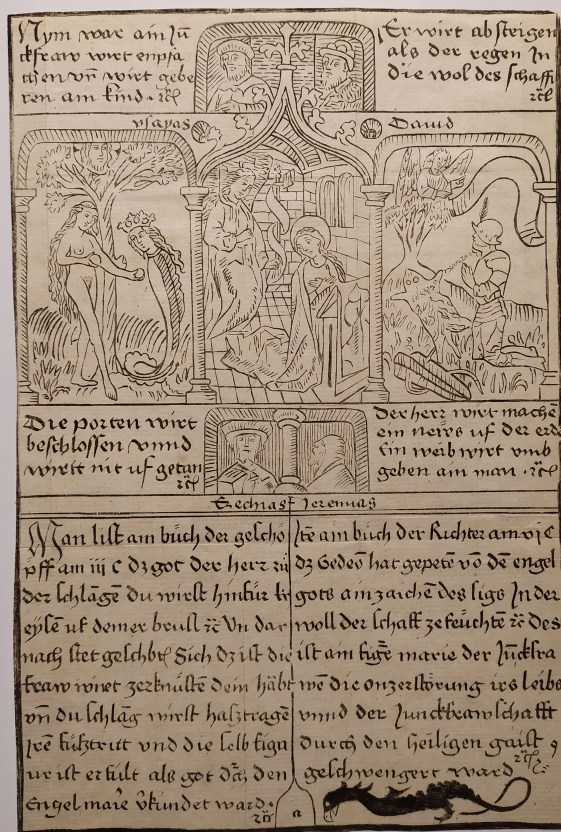 Nym war ain Jū
ckfraw wirt enpfa
chen vn̄ wirt gebe
ren ain kind · rc̄
Er wirt absteigen
als der regen In
die wol des schaff
rc̄
ysayas
Dauid
Die porten wirt
beschlossen vnnd
wirtt nit uf getan
rc̄
Der herr wirt machē
ein neẅs uf der erd
Ein weib wirt vmb
geben ain man · rc̄
Ezechias
Jeremias
Man list am bůch der geschö
pff am iii c dz got der herr zů
der schlangē du wirst hinfür kr
eysē uf deiner brust rc̄ Vn dar
nach stet geschbē Sich dz ist die
fraw wirt zerknustē dein häbt
vn̄ du schlāg wirst haßtragē
Jrē fůßtritt vnd die selb figu
ur ist erfült als got dch den
Engel marē vkündet ward ·
rc̄
Jtē am bůch der Richter am vi c
dz Gedeō hat gepetē vō dē engel
gots ain zaichē des sigs In der
woll der schaff ze feüchtē rc̄ des
ist ain figē marie der Jūckfra
wē die on zerstörung irs leibs
vnnd der Junckfrawschafft
durch den heiligen gaist
geschwengert ward rc̄
a